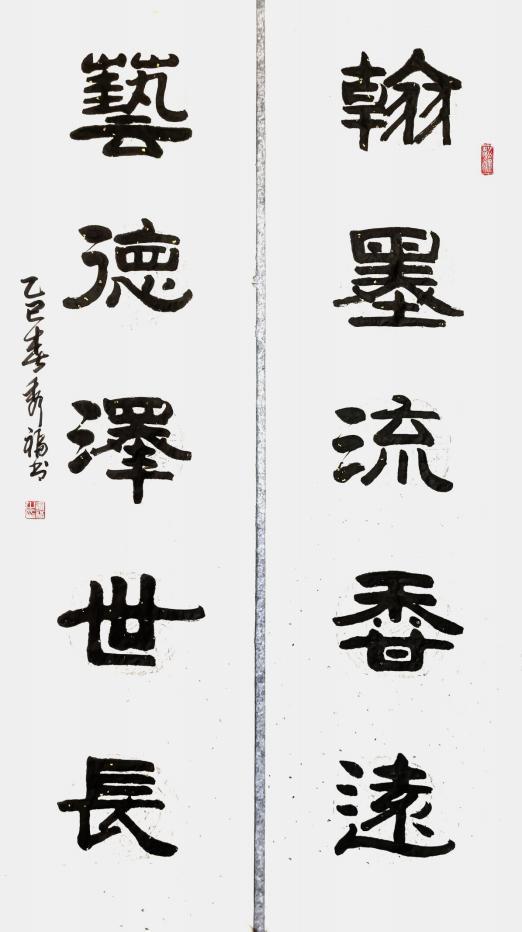 翰墨流香遠
藝德澤世長
乙巳春秀福书